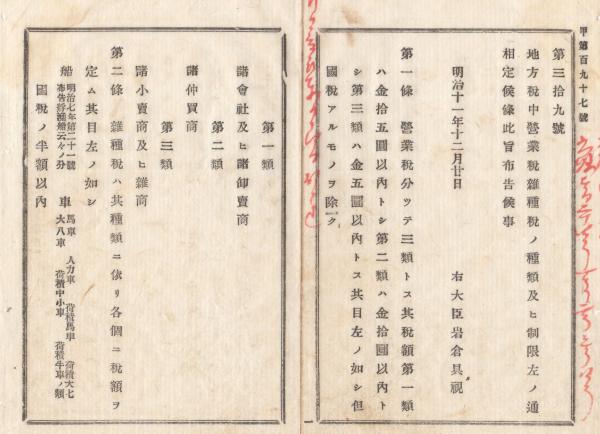 甲第百九十七號
第三拾九號
地方稅中營業稅雜種稅ノ種類及ヒ制限左ノ通
相定候條此旨布告候事
明治十一年十二月廿日
右大臣岩倉具視
第一條 營業稅分ツテ三類トス其稅額第一類
ハ金拾五圓以內トシ第二類ハ金拾圓以內ト
シ第三類ハ金五圓以內トス其目左ノ如シ但
國稅アルモノヲ除ク
第一類
諸會社及ヒ諸卸賣商
第二類
諸仲買商
第三類
諸小賣商及ヒ雜商
第二條 雜種稅ハ其種類ニ依リ各個ニ稅額ヲ
定ム其目左ノ如シ
船 明治七年第二十一號布告 車 馬車 人力車 荷積馬車 荷積大七大八車 荷積中小車 荷積牛車ノ類
國稅ノ半額以內